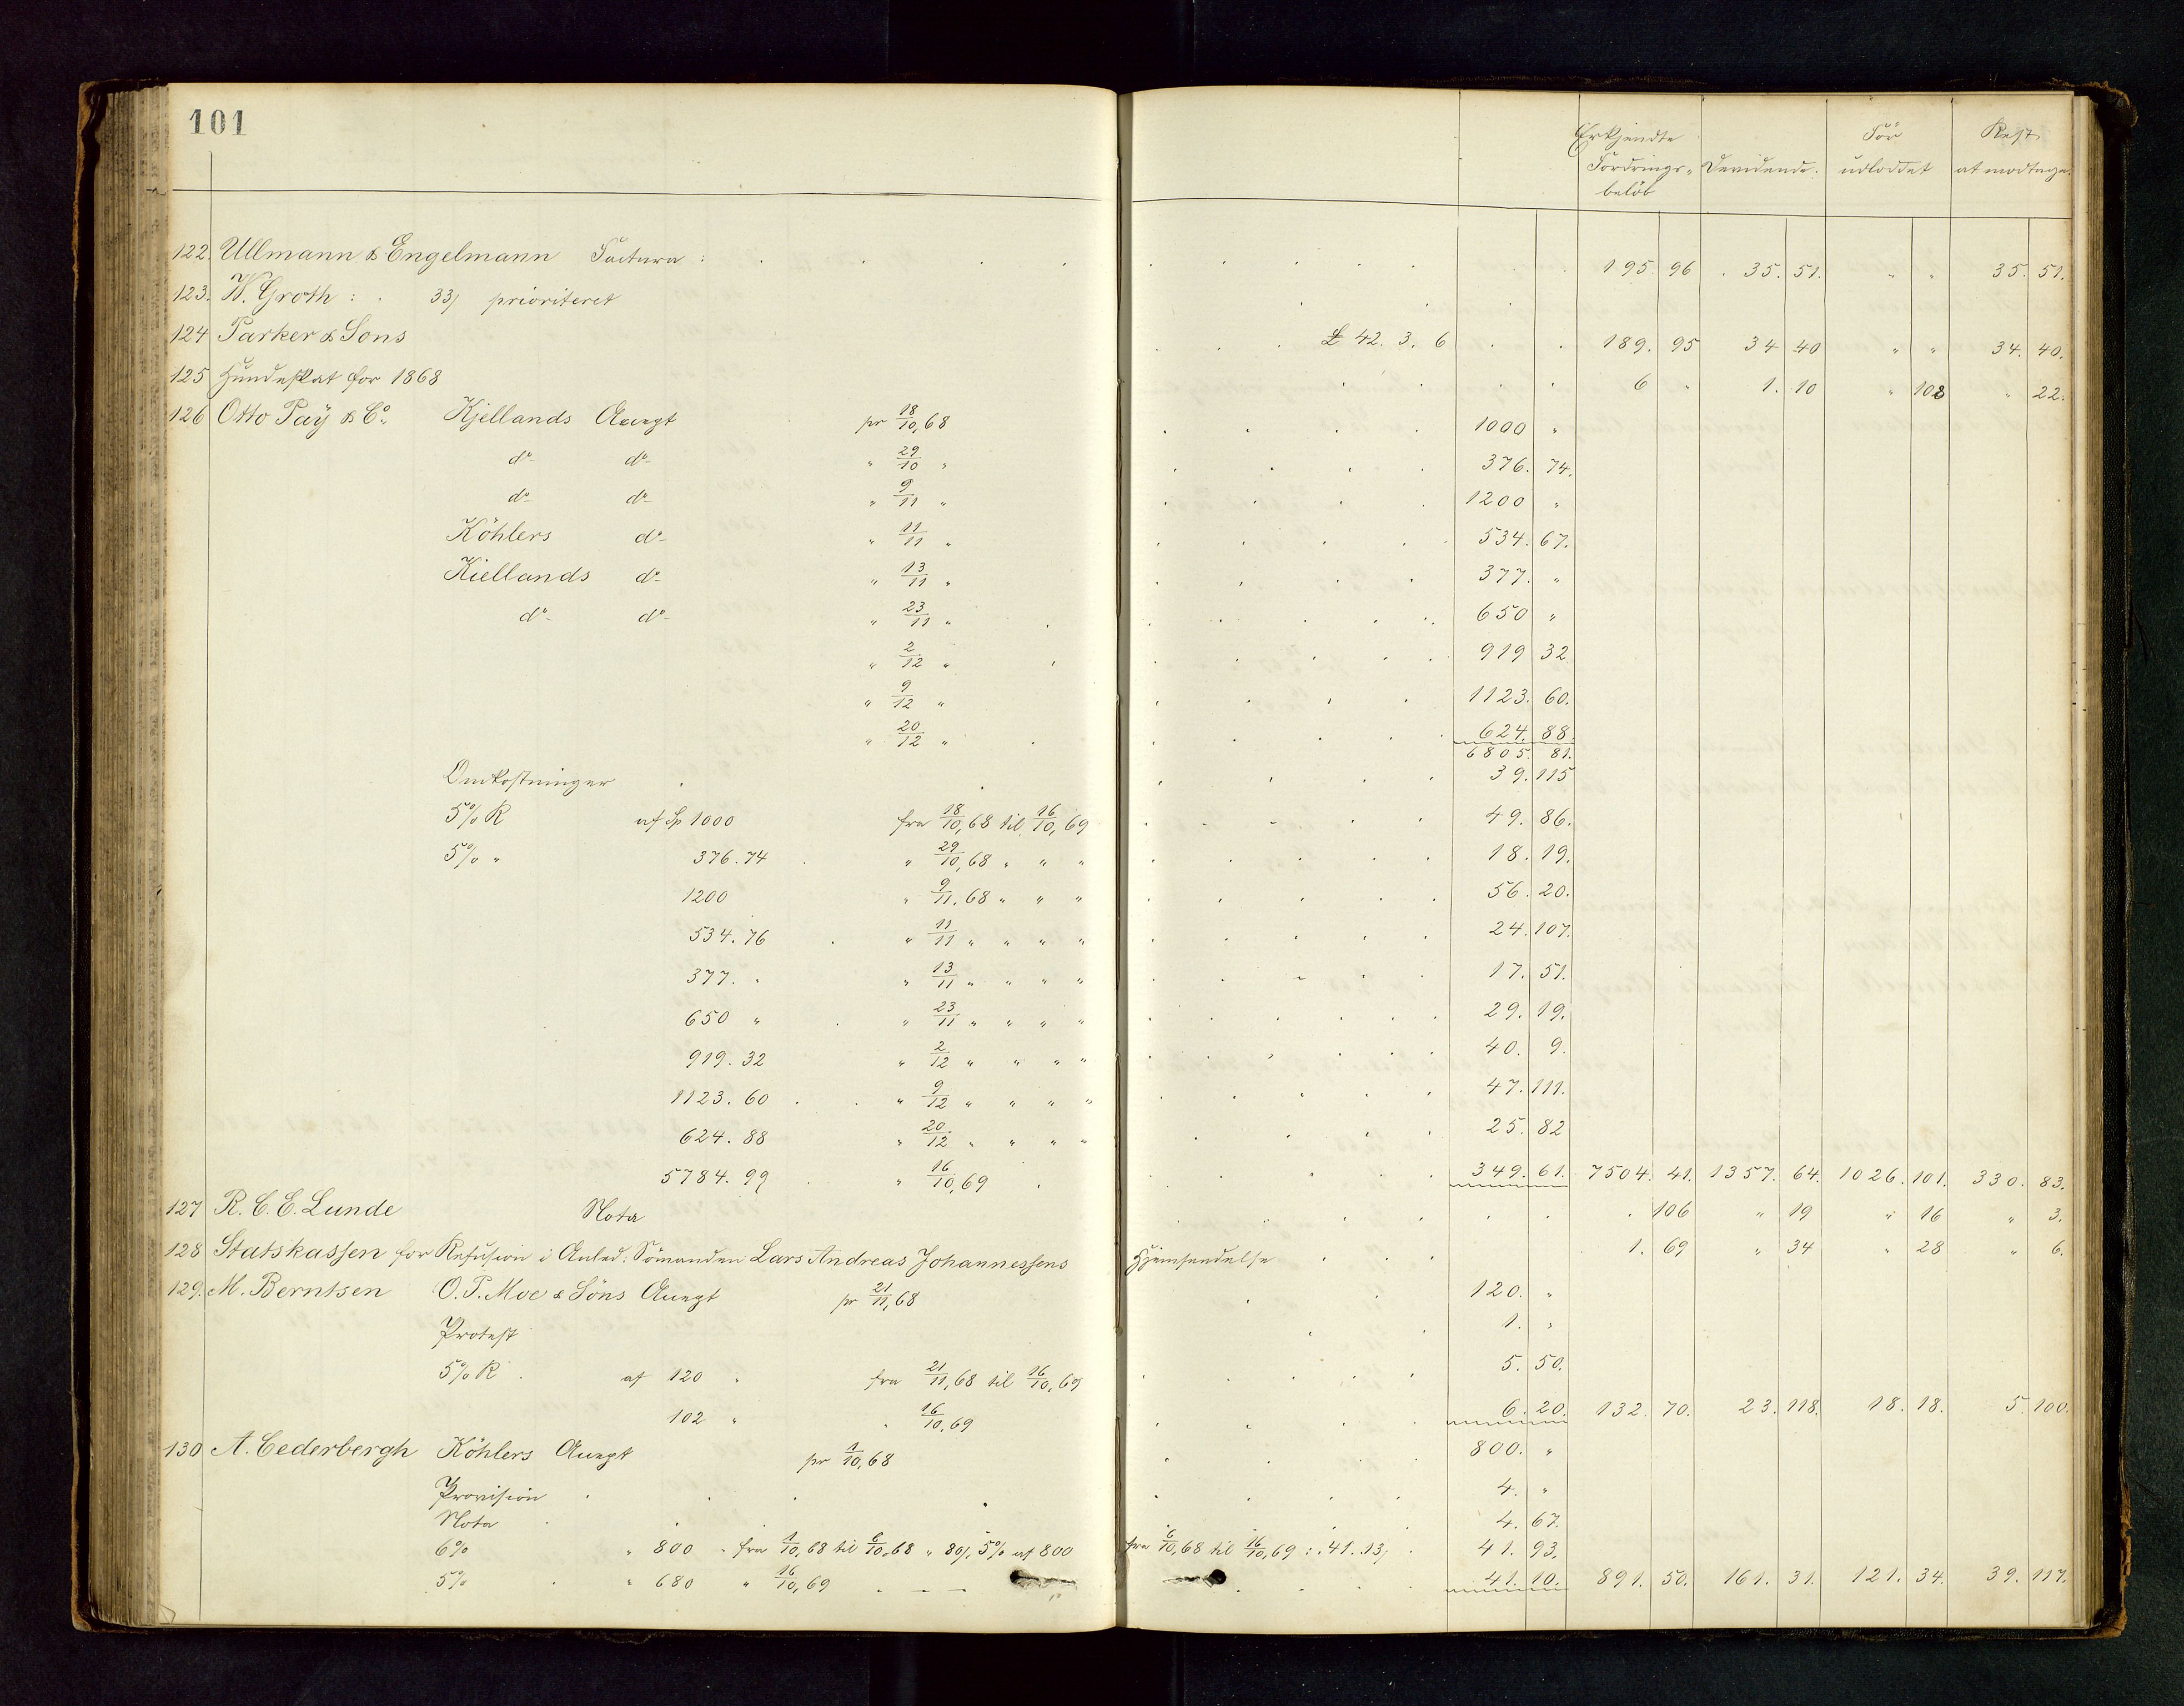 101
Erkjendte Fordrings-beløb Devidende. Før udloddet Rest at modtage.
122. Ullmann & Engelmann Factura : 195. 96 35. 51. " " 35. 51.
123. W. Groth : 33/ prioriteret
124 Parker & Sons £ 42. 3. 6 189. 95 34 40 " " 34. 40.
125 Hundeskat for 1868 6 " 1. 10 " 108 " 22.
126 Otto Paÿ & Co. Kjellands Accept pr 18/10, 68 1000 "
do do " 29/10 " 376. 74.
do do " 9/11 " 1200 "
Köhlers do " 11/11 " 534. 67.
Kiellands do " 13/11 " 377. "
do do " 23/11 " 650 "
" 2/12 " 919 32
" 9/12 " 1123. 60.
" 20/12 " 624. 88.
6805. 81.
Omkostninger 39. 115
5% R af Sp 1000 fra 18/10, 68 til 16/10, 69 49. 86.
5% " 376. 74 " 29/10, 68 " " " 18. 19.
1200 " 9/11. 68 " " " 56. 20.
534. 76 " 11/11 " " " " 24. 107.
377. " " 13/11 " " " " 17. 51.
650 " " 23/11 " " " " 29. 19.
919. 32 " 2/12 " " " " 40. 9.
1123. 60 " 9/12 " " " " 47. 111.
624. 88 " 20/12 " " " " 25. 82
5784. 99 " 16/10, 69 349. 61. 7504. 41. 1357. 64. 1026. 101. 330. 83.
127 R. C. E. Lunde Nota 106 " 19 " 16 " 3.
128 Statskassen for Refusion i Anled: Sömanden Lars Andreas Johannessens Hjemsendelse 1. 69 " 34 " 28 " 6.
129. M. Berntsen O. P. Moe & Söns Accept pr 21/11, 68 120. "
Protest 1. "
5% R af 120 " fra 21/11, 68 til 16/10, 69 5. 50.
102 " " 16/10, 69 6. 20. 132. 70. 23. 118. 18. 18. 5. 100.
130 A. Cederbergh Köhlers Accept pr 1/10, 68 800. "
Provision 4. "
Nota 4. 67.
6% " 800 " fra 1/10, 68 til 6/10, 68 " 80/, 5% af 800 fra 6/10, 68 til 16/10, 69 : 41. 13/ 41. 93.
5% " 680 " 16/10, 69 41. 10. 891. 50. 161. 31. 121. 34. 39. 117.